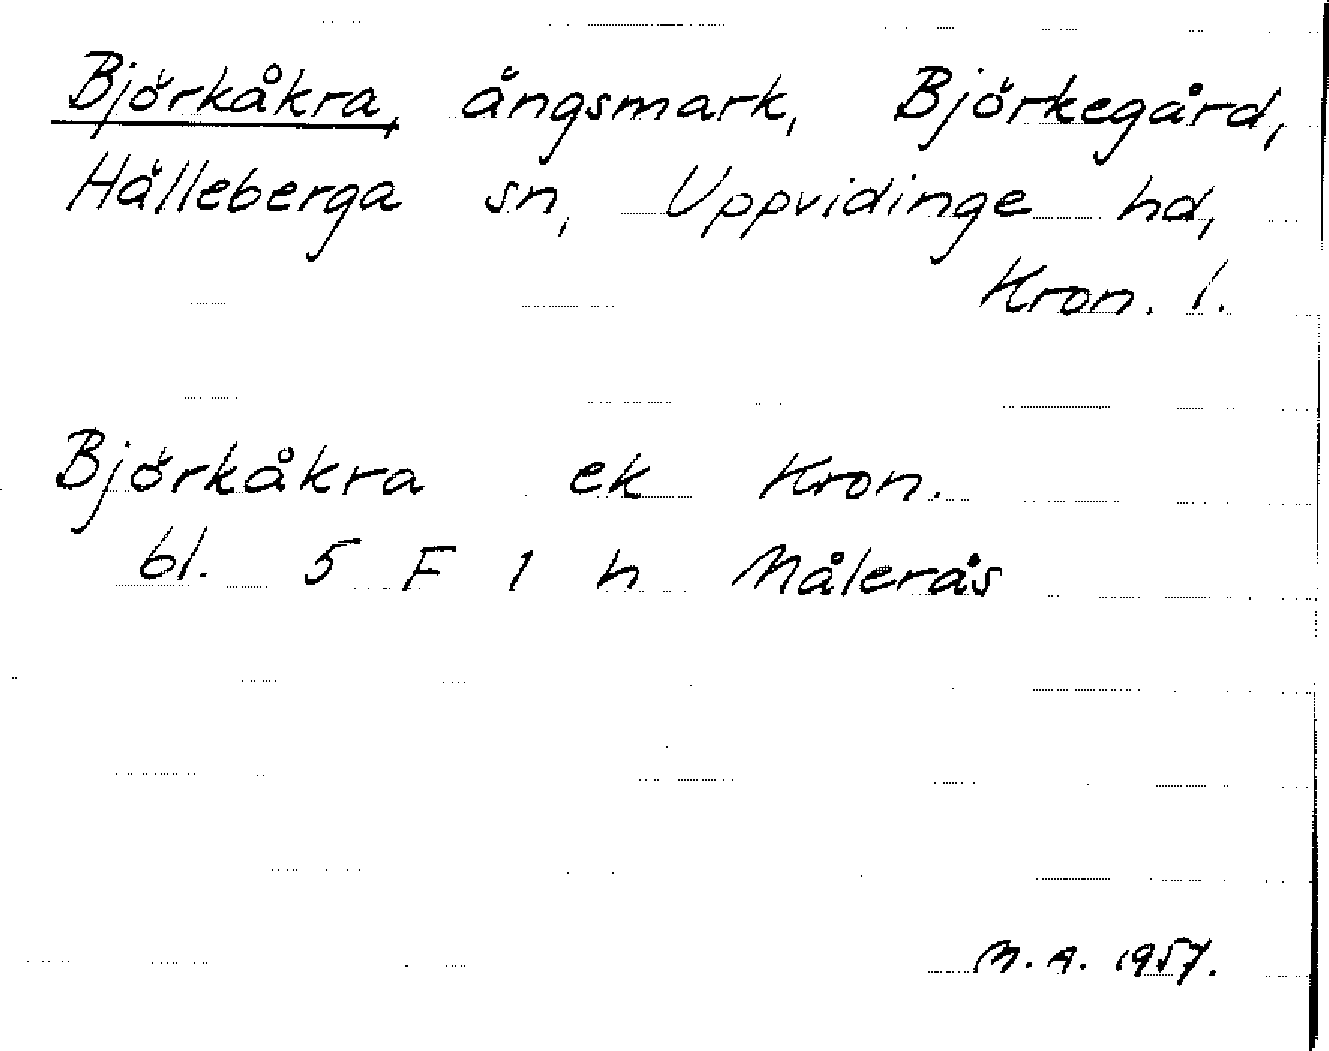 Björkåkra, ängsmark, Björkegård,
Hälleberga sn, Uppvidinge hd,
Kron. l.
Björkåkra ek Kron.
bl. 5 F 1 h Målerås
M. A. 1957.